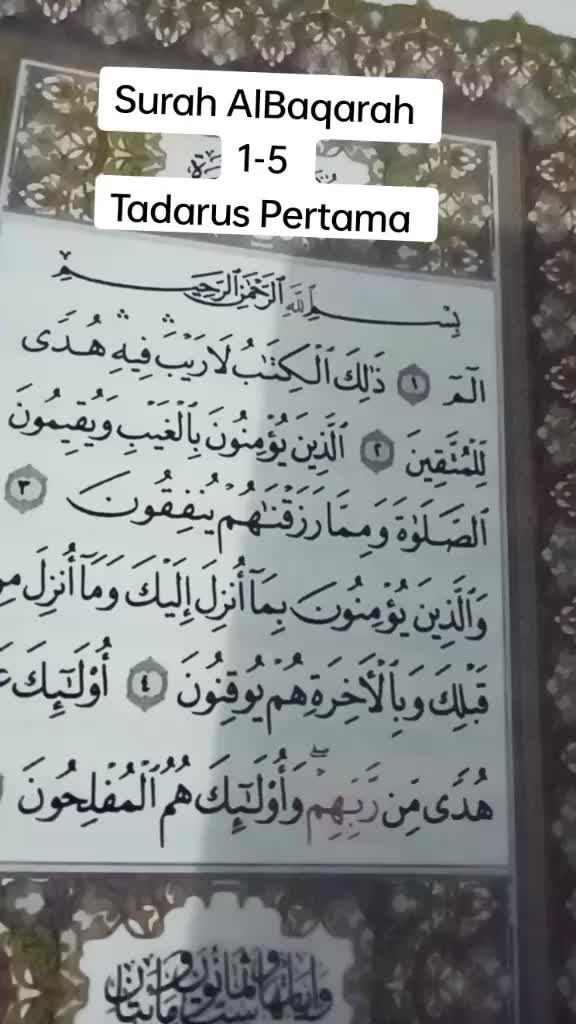 Surah AlBaqarah
1-5
Tadarus Pertama
بِسْمِ ٱللَّهِ ٱلرَّحْمَٰنِ ٱلرَّحِيمِ
الٓمٓ ١ ذَٰلِكَ ٱلْكِتَٰبُ لَا رَيْبَ ۛ فِيهِ ۛ هُدًى
لِّلْمُتَّقِينَ ٢ ٱلَّذِينَ يُؤْمِنُونَ بِٱلْغَيْبِ وَيُقِيمُونَ
ٱلصَّلَوٰةَ وَمِمَّا رَزَقْنَٰهُمْ يُنفِقُونَ ٣
وَٱلَّذِينَ يُؤْمِنُونَ بِمَآ أُنزِلَ إِلَيْكَ وَمَآ أُنزِلَ مِن
قَبْلِكَ وَبِٱلْءَاخِرَةِ هُمْ يُوقِنُونَ ٤ أُو۟لَٰٓئِكَ
هُدًى مِّن رَّبِّهِمْ ۖ وَأُو۟لَٰٓئِكَ هُمُ ٱلْمُفْلِحُونَ